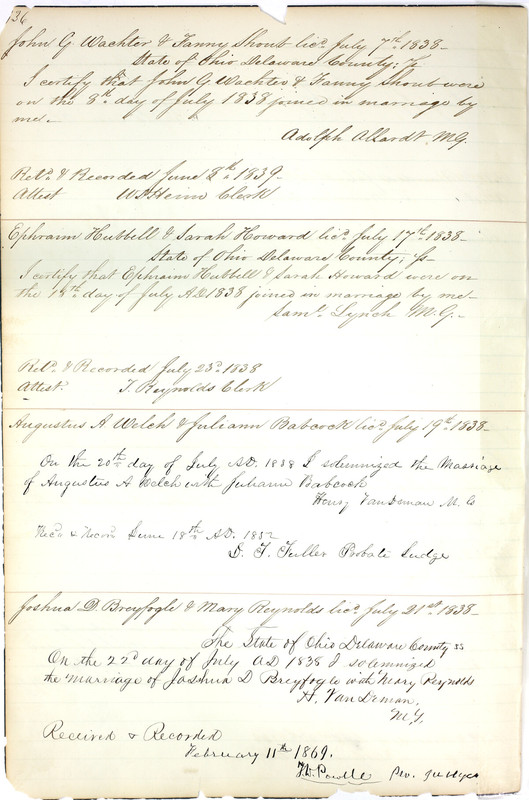 36
John G Wachter & Fanny Shout licd July 7th 1838-
State of Ohio Delaware County; Ss
I certify that John G Wachter & Fanny Shout were
on the 8th day of July 1838 joined in marriage by
me.-
Adolph Allardt. M.G.
Recd & Recorded June 8th 1839-
Attest W. Heim Clerk
Ephraim Hubbell & Sarah Howard licd July 17th 1838-
State of Ohio Delaware County; Ss
I certify that Ephraim Hubbell & Sarah Howard were on
the 19th day of July AD 1838 joined in marriage by me-
Saml Lynch M.G.-
Recd & Recorded July 23d 1838
Attest. T. Reynolds Clerk
Augustus A Welch & Juliann Babcock licd July 19th 1838-
On the 20th day of July AD. 1838 I solemnized the Marriage
of Augustus A Welch with Juliann Babcock
Henry VanDeman M. G
Recd & Recor June 18th AD. 1852
D. T. Fuller Probate Judge
Joshua D. Breyfogle & Mary Reynolds licd July 21st 1838-
The State of Ohio Delaware County ss
On the 22d day of July AD 1838 I solemnized
the marriage of Joshua D Breyfogle with Mary Reynolds
H. VanDeman.
M.G.
Received & Recorded
February 11th 1869.
Powell Pro. Judge